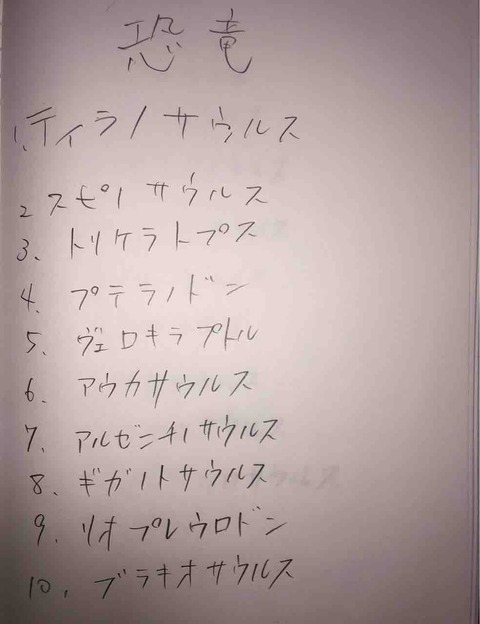 恐竜
1、ティラノサウルス
2 スピノサウルス
3、トリケラトプス
4、プテラノドン
5、ヴェロキラプトル
6、アウカサウルス
7、アルゼンチノサウルス
8、ギガノトサウルス
9、リオプレウロドン
10、ブラキオサウルス